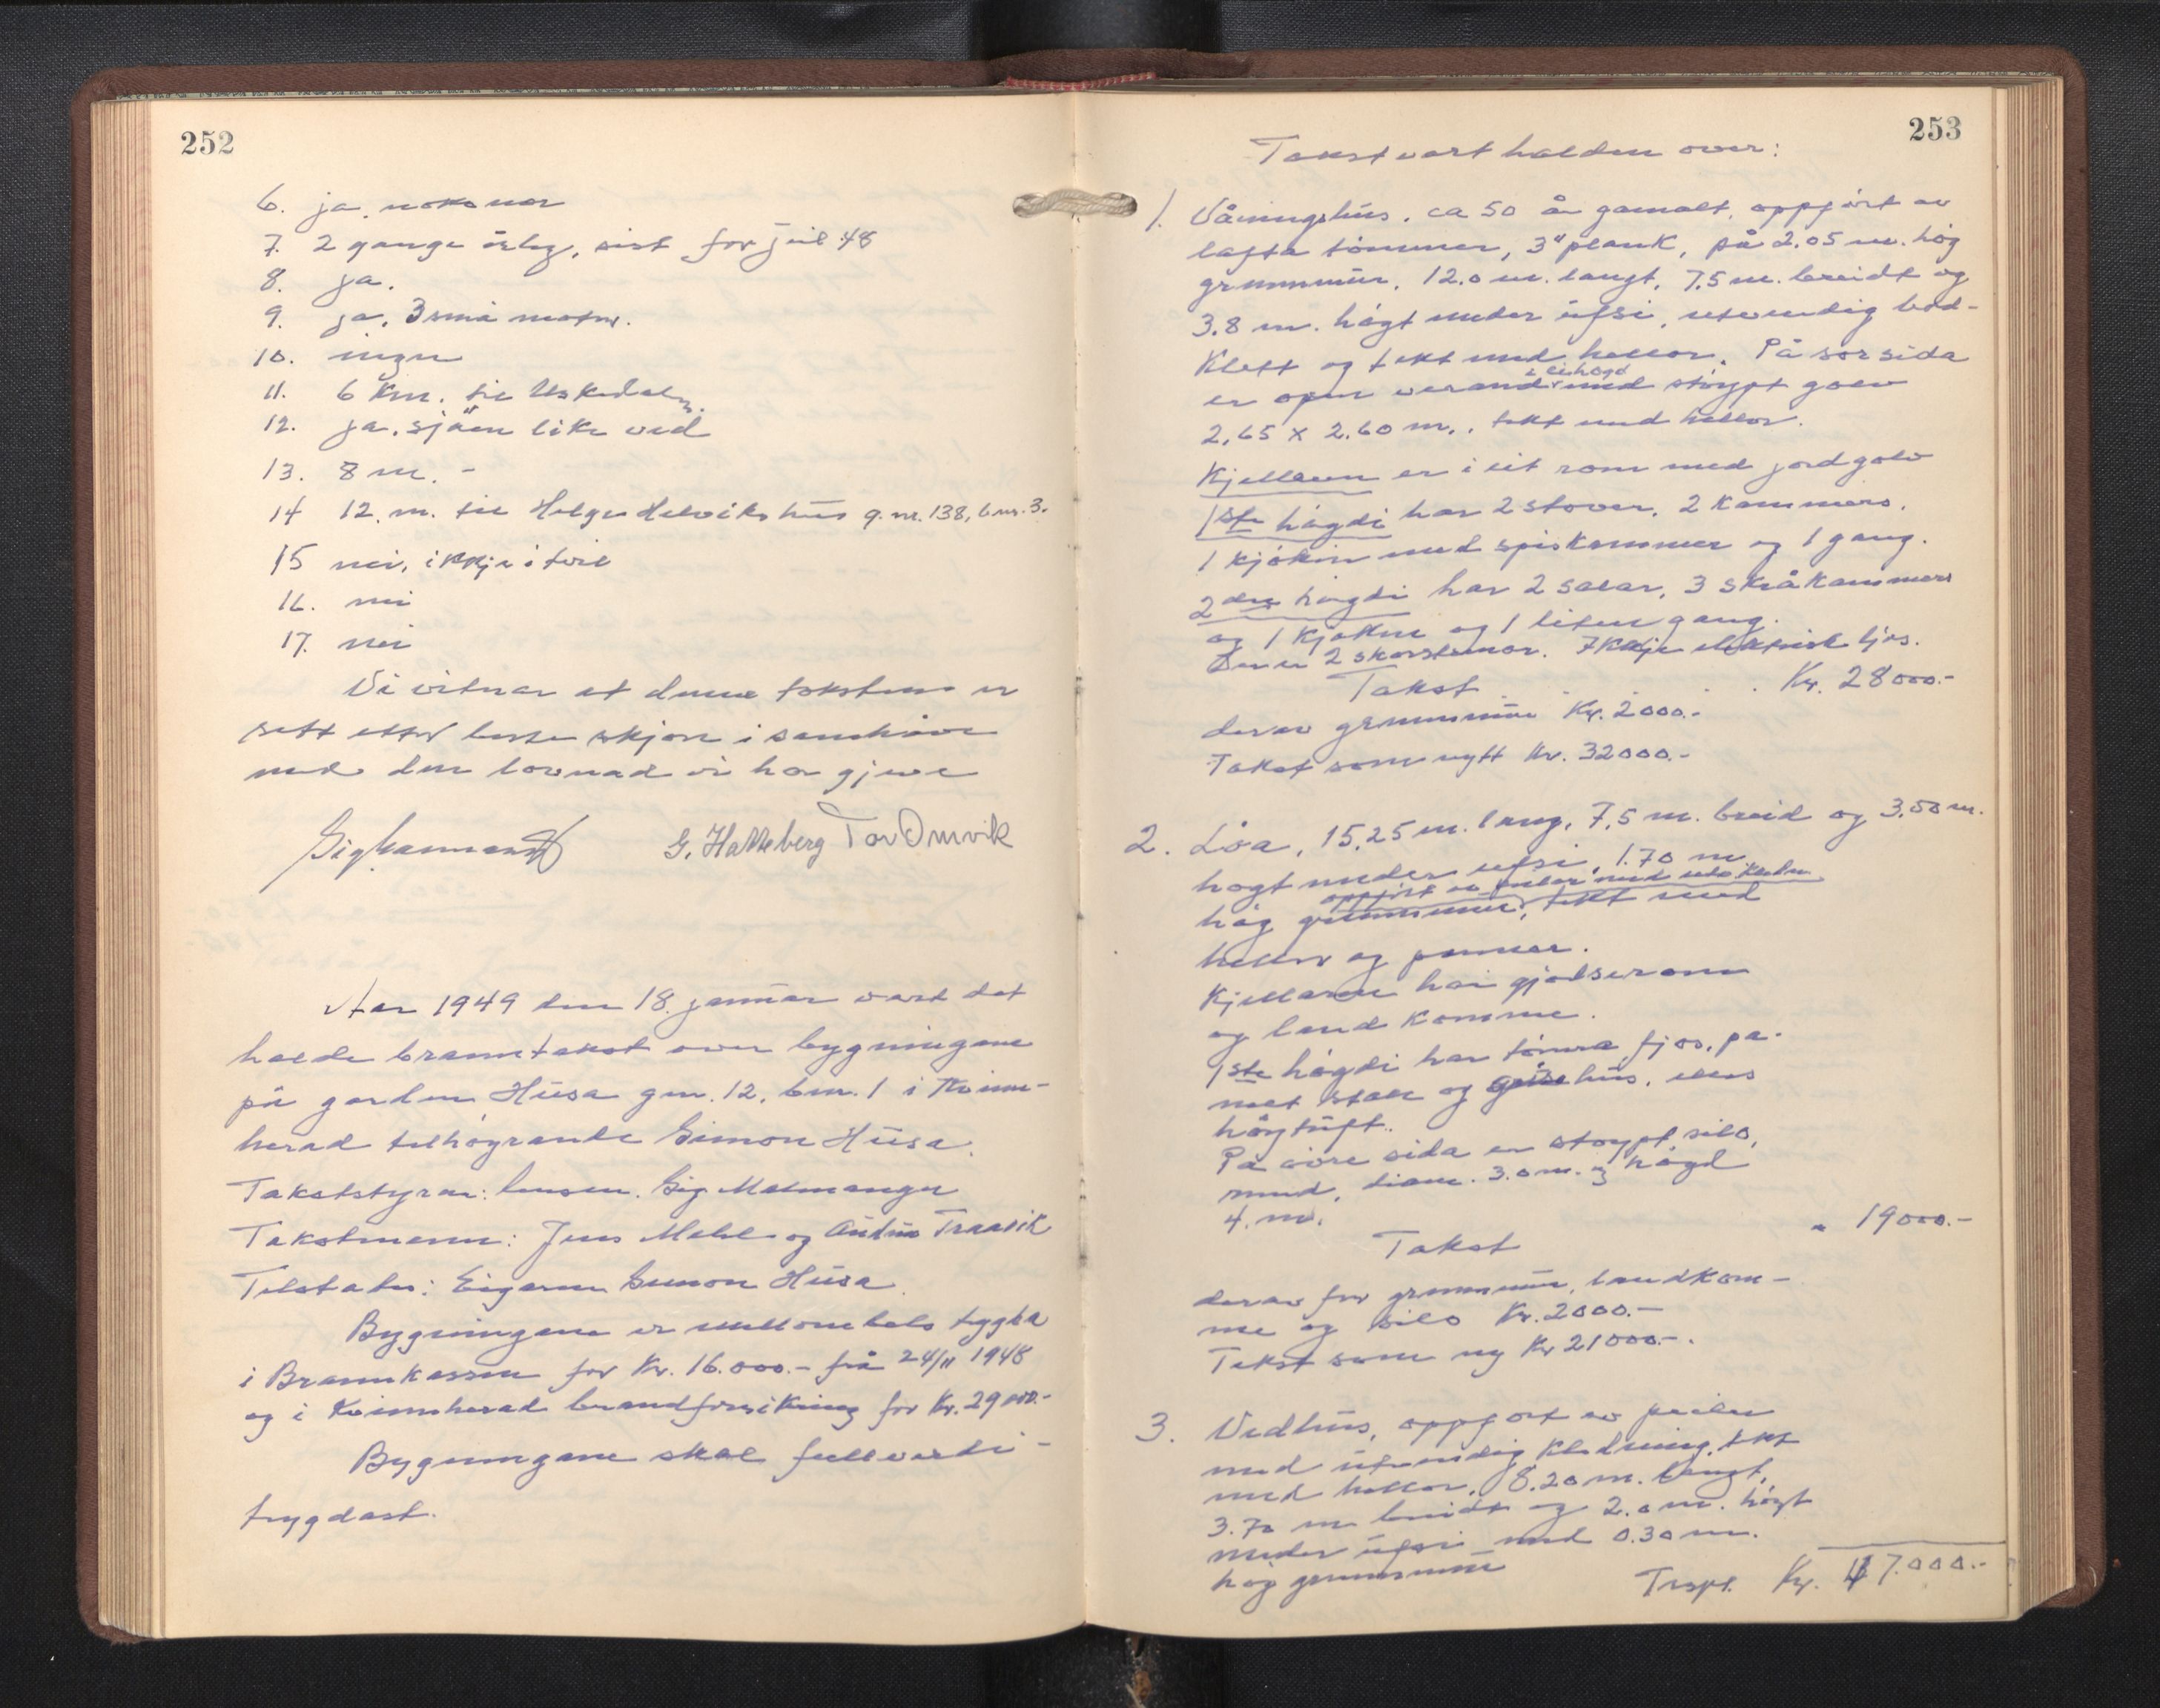 252
6. ja, noko mor
7. 2 gange årleg, sist for jul 48
8. ja.
9. ja, 3 små motor.
10. ingen
11. 6 km. til Uskedalen.
12. ja, sjøen like ved
13. 8 m. -
14 12. m. til Helge Helviks hus g.nr. 138, b.nr. 3.
15 nei, ikkje i tvil
16. nei
17. nei
Vi vitnar at denne taksten er
sett etter beste skjøn i samhøve
med den lovnad vi har gjeve
G. Hatteberg Tor Omvik
Aar 1949 den 18. januar vart det
halde branntakst over bygningane
på garden Husa gnr. 12, bnr. 1 i Kvinn-
herad tilhøyrande Simon Husa.
Takststyrar: lensm. Sig Malmanger
Takstmenn: Jens Mehl og
Tilstades: Eigaren Simon Husa.
Bygningane er mellombels trygda
i Brannkassen for Kr. 16.000.- frå 24/11 1948
og i Kvinnherad brandforsikring for Kr. 29000.-
Bygningane skal fullverdi-
trygdast.
253
Takst vart halden over:
1. Våningshus, ca 50 år gamalt, oppført av
lafta tømmer, 3" plank, på 2.05 m. høg
grunnmur, 12.0 m. langt, 7.5 m. breidt og
3.8 m. høgt under ufsi, utvendig bord-
klett og tekt med hellor. På sørsida
er open verand i ei høgd med støypt golv
2.65 x 2.60 m., tekt med hellor.
Kjellaren er i eit rom med jordgolv
1ste høgdi har 2 stover, 2 kammers,
1 kjøkin med spiskammer og 1 gang.
2dre høgdi har 2 salar, 3 skråkammers
og 1 kjøken og 1 liten gang.
Der er 2 skorsteinar. Ikkje elektrisk ljos.
Takst . . . . Kr. 28000.-
derav grunnmur Kr. 2000.-
Takst som nytt Kr. 32000.-
2. Løa, 15.25 m. lang, 7.5 m. breid og 3.50 m.
høgt under ufsi, 1.70 m.
høg grunnmur, oppført av med tekt med
hellor og pannor.
Kjellaren har gjødselrom
og landkomme.
1ste høgdi har tømra fjos,
og grisehus, elles
høytuft.
På øvre sida er støypt silo,
rund, diam. 3.0 m. og høgd
4. m.
Takst " 19000.-
derav for grunnmur, landkom-
me og silo Kr. 2000.-
Takst som ny Kr 21000.-.
3. Vedhus, oppført av peiler
med utvendig kledning, tekt
med hellor, 8.20 m. langt,
3.70 m breidt og 2.0 m. høgt
under ufsi med 0.30 m.
høg grunnmur
Trspt. Kr. 47.000.-